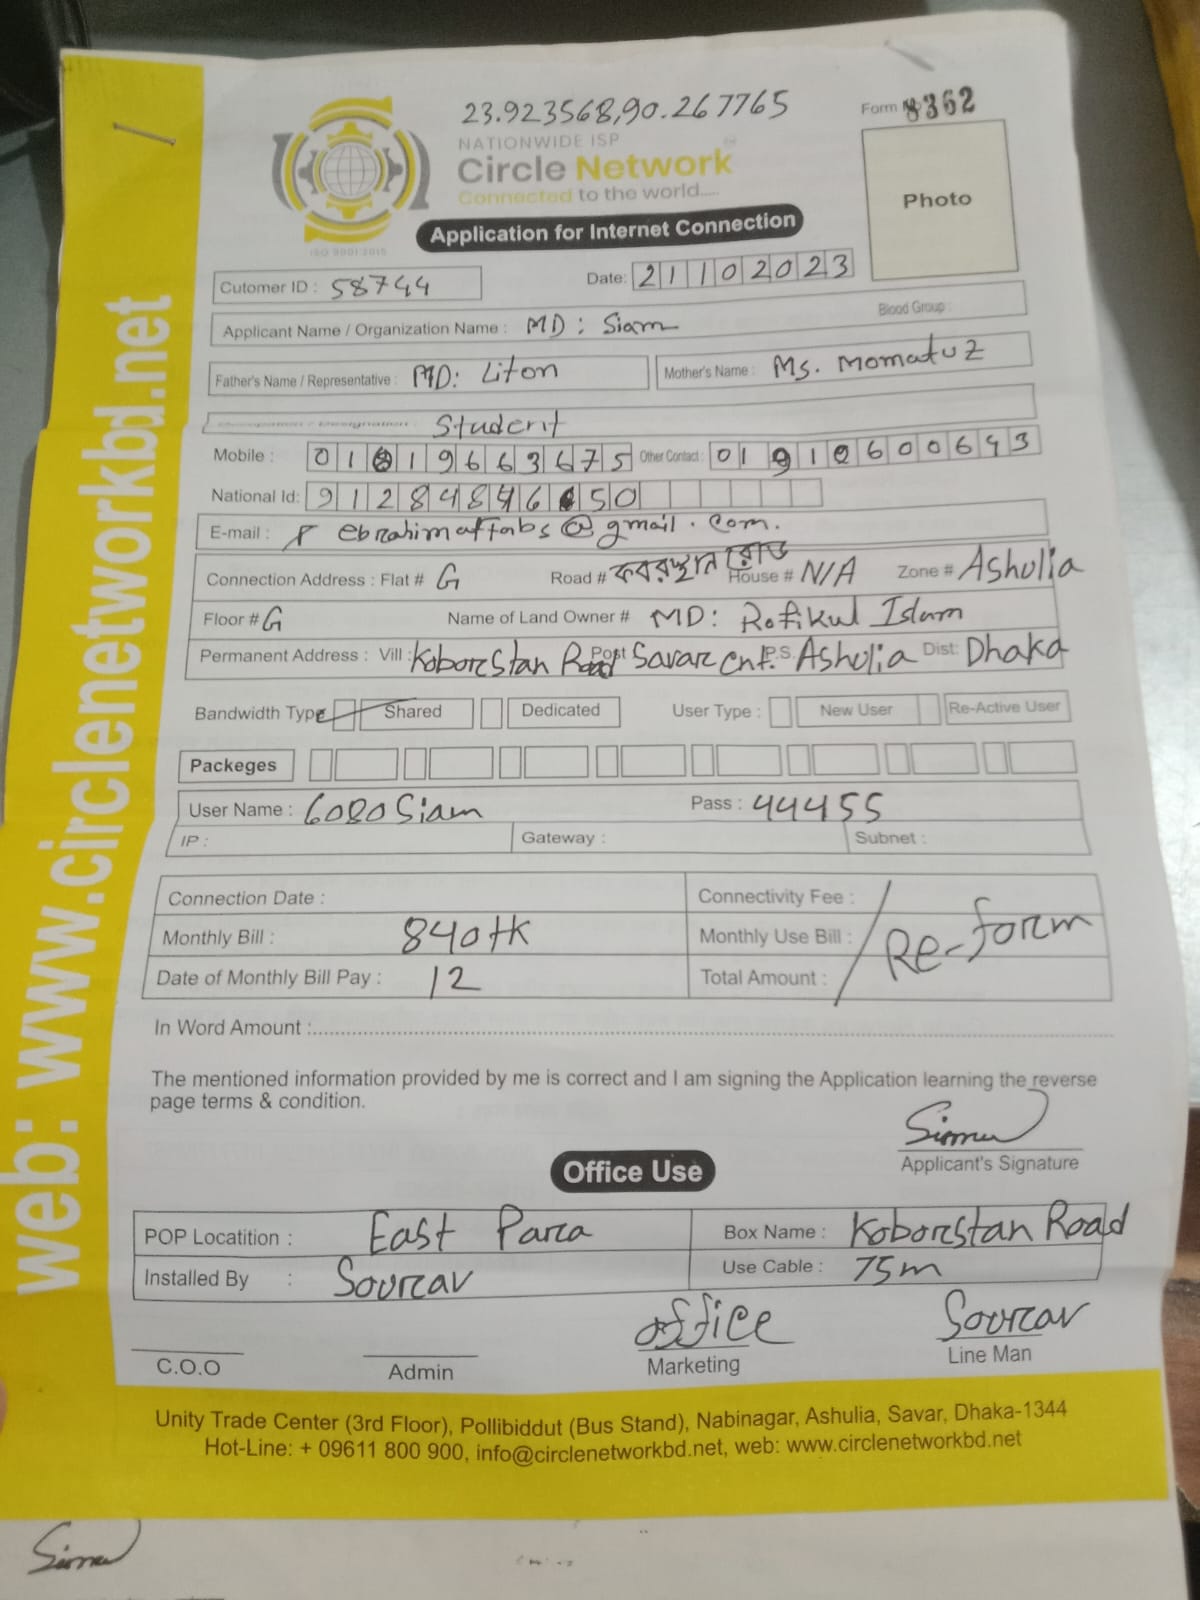 23.923568,90.267765
Form № 8362
NATIONWIDE ISP
Circle Network
Connected to the world.....
ISO 9001:2015
Photo
Application for Internet Connection
Cutomer ID : 58744
Date: 21102023
Blood Group :
Applicant Name / Organization Name : MD: Siam
Father's Name / Representative : MD: Liton
Mother's Name : Ms. Momatuz
Student
Mobile : 01819663675 Other Contact : 01910600643
National Id: 9128484650
E-mail : ebrahimaffabs@gmail.com.
Connection Address : Flat # G Road # কবরস্থান রোড House # N/A Zone # Ashulia
Floor # G Name of Land Owner # MD: Rofikul Islam
Permanent Address : Vill : Koborstan Road Post Savar Cnt. P.S. Ashulia Dist: Dhaka
Bandwidth Type Shared Dedicated User Type : New User Re-Active User
Packeges
User Name : 6080Siam Pass : 44455
IP : Gateway : Subnet :
Connection Date : Connectivity Fee :
Monthly Bill : 840tk Monthly Use Bill : Re-form
Date of Monthly Bill Pay : 12 Total Amount :
In Word Amount :
The mentioned information provided by me is correct and I am signing the Application learning the reverse
page terms & condition.
Siam
Applicant's Signature
Office Use
POP Locatition : East Para Box Name : Koborstan Road
Installed By : Sourav Use Cable : 75m
office Sourav
C.O.O Admin Marketing Line Man
Unity Trade Center (3rd Floor), Pollibiddut (Bus Stand), Nabinagar, Ashulia, Savar, Dhaka-1344
Hot-Line: + 09611 800 900, info@circlenetworkbd.net, web: www.circlenetworkbd.net
Siam
web: www.circlenetworkbd.net